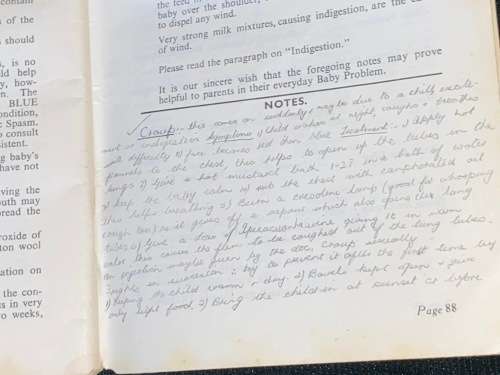 contain
s of the
should
, is no
ld help
y, how-
n. The
BLUE
ondition,
Spasm.
to consult
sistent.
ng baby's
have not
ving the
outh may
pread the
roxide of
tton wool
ation on
the con-
s in very
wo weeks,
the feed is
baby over the shoulder,
to dispel any wind.
Very strong milk mixtures, causing indigestion, are the
of wind.
Please read the paragraph on “Indigestion.”
It is our sincere wish that the foregoing notes may prove
helpful to parents in their everyday Baby Problem.
NOTES.
Croup:- this comes on suddenly & may be due to a chill excite-
ment or indigestion Symptoms 1) Child wakes at night, coughs & breathes
with difficulty 2) face becomes red then blue Treatment:- 1) Apply hot
to the chest, this helps to open up the tubes in the
lungs 2) Give a hot mustard bath 1-2T in a bath of water
3) keep the baby calm 4) rub the chest with camphorated oil
this helps breathing 5) Burn a cresolene lamp (good for whooping
cough too) as it gives off a vapour which also opens this lung
tubes 6) Give a dose of Ipecacuanha wine giving it in warm
water this causes the to be coughed out of the lung tubes.
An injection maybe given by the doc. Croup usually
3 nights in succession: try to prevent it after the first time by
1) Keeping the child warm & dry. 2) Bowels kept open & give
only light food. 3) Bring the children at sunset or before
Page 88